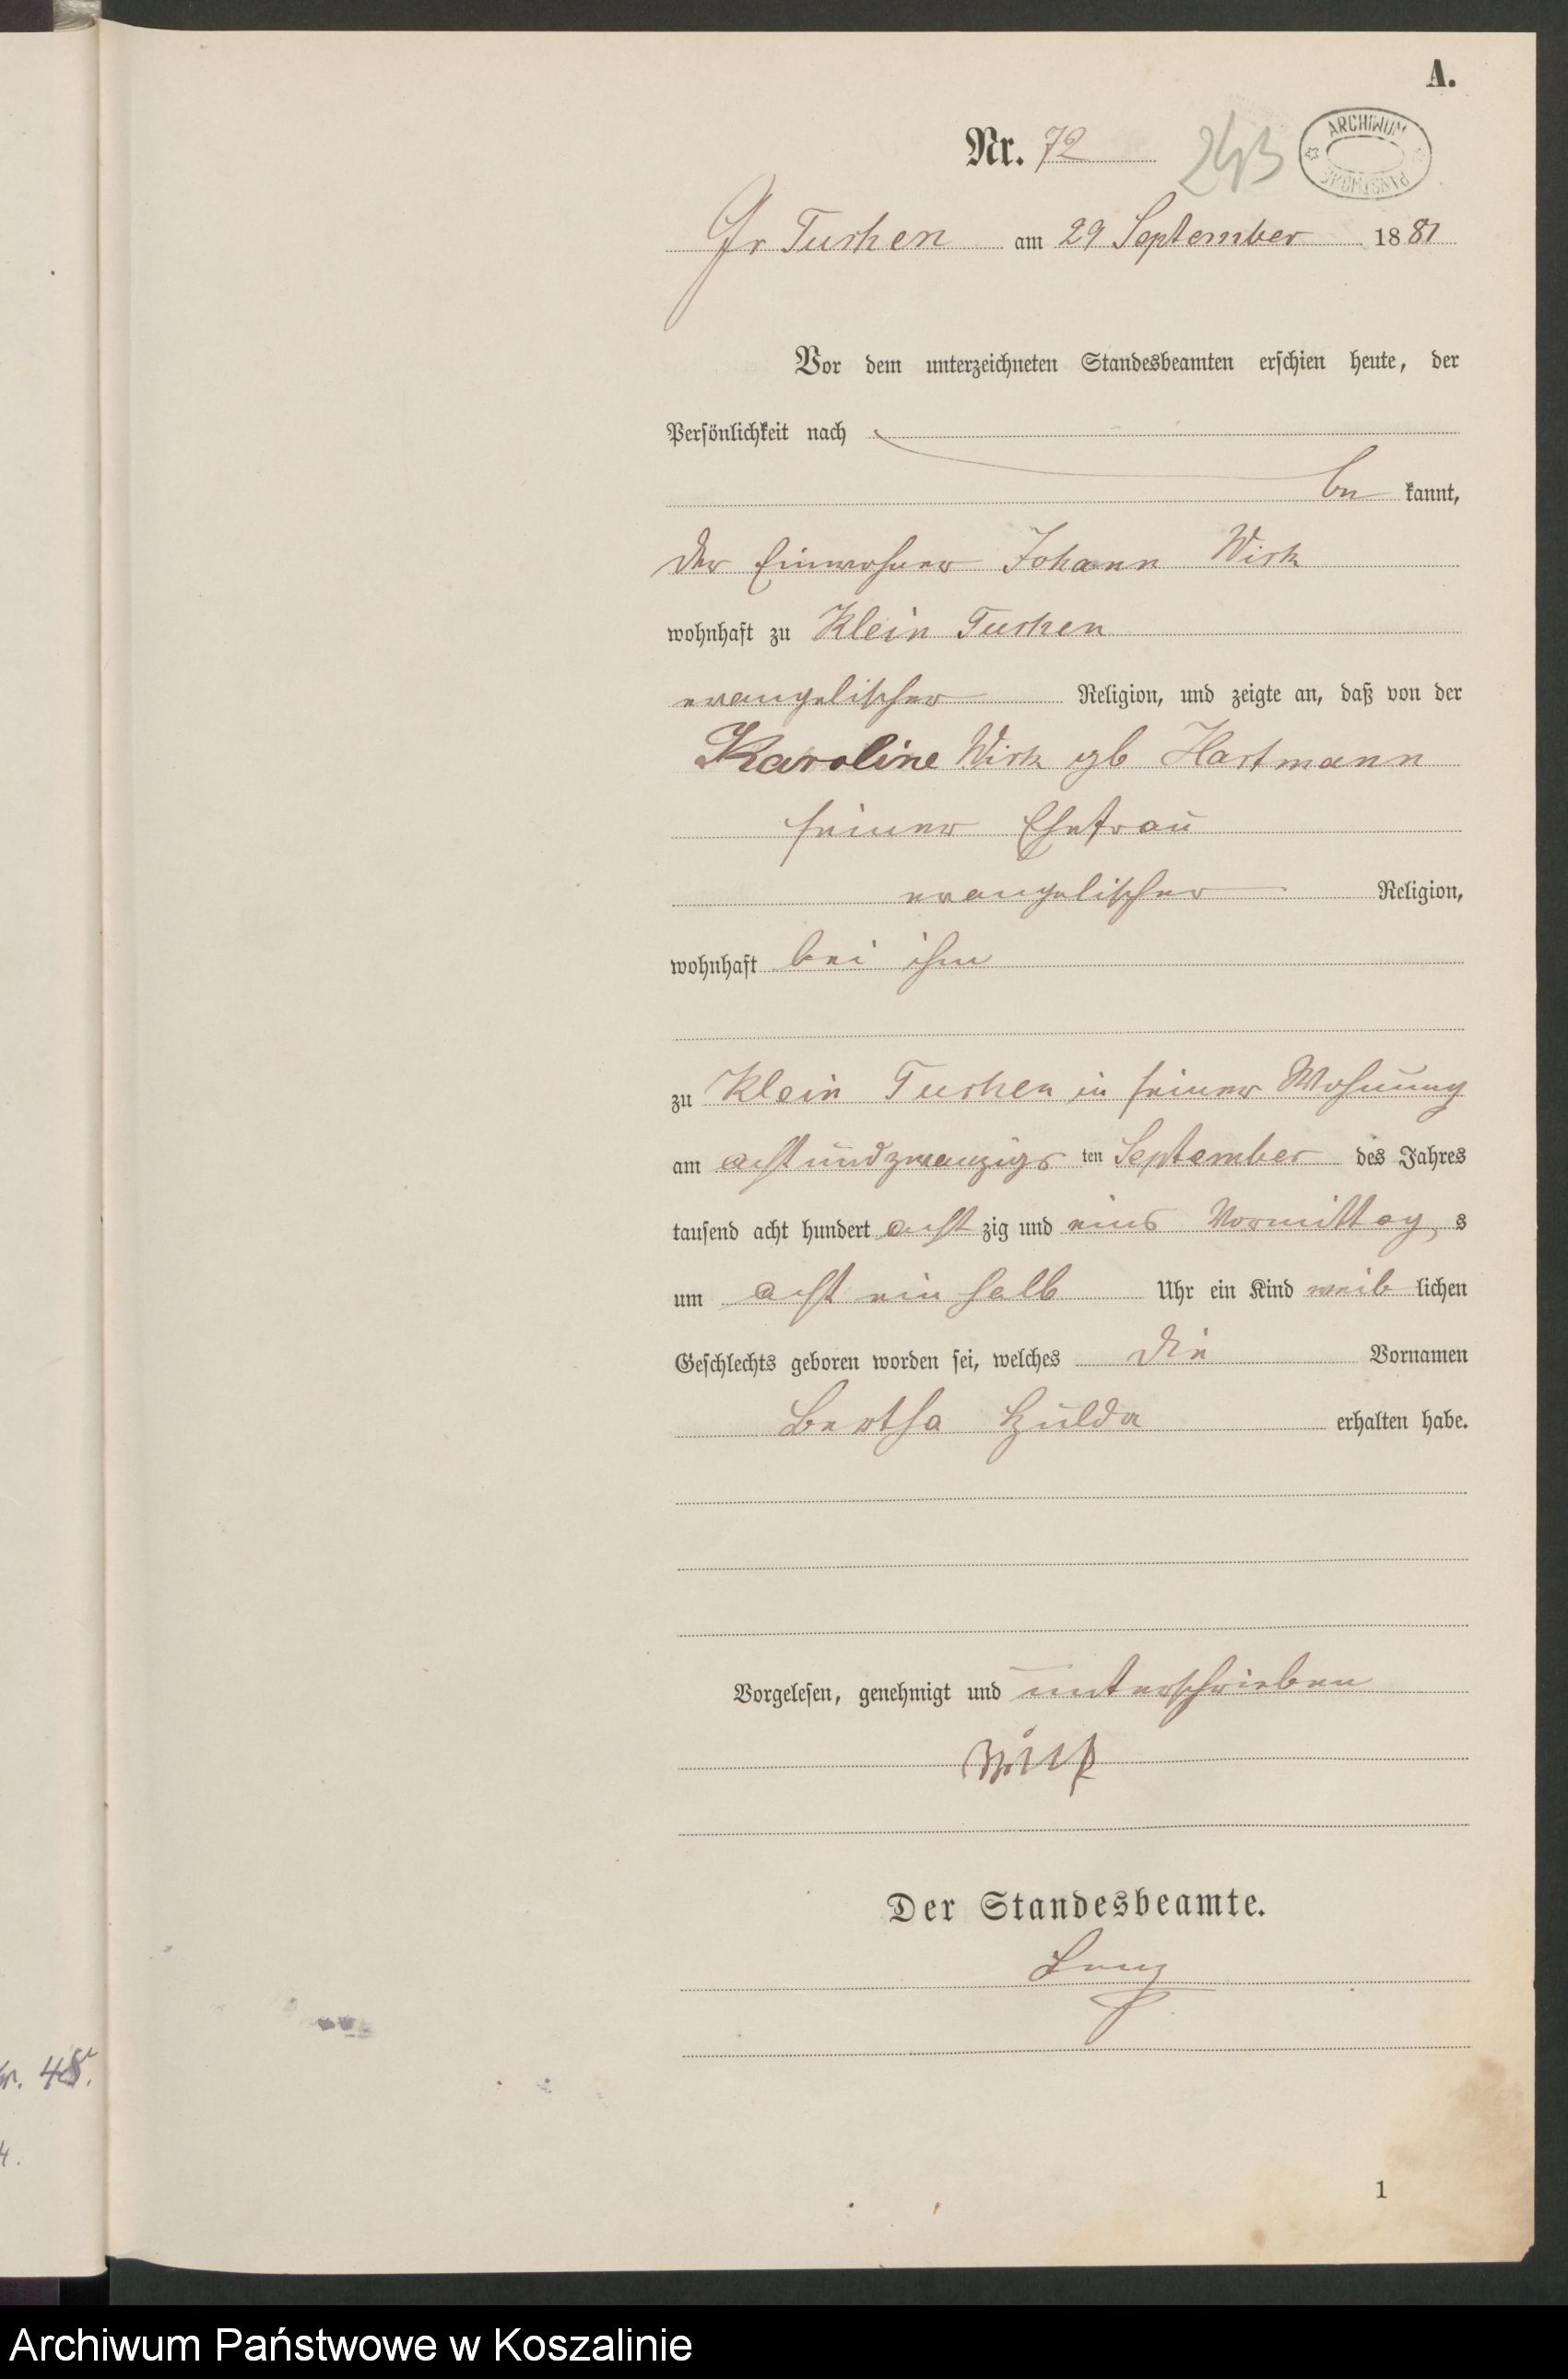 A.
Nr. 72
243
ARCHIWUM PAŃSTWOWE
Gr Tuchen am 29 September 1881
Vor dem unterzeichneten Standesbeamten erschien heute, der
Persönlichkeit nach
be kannt,
der Einwohner Johann Wirk
wohnhaft zu Klein Tuchen
evangelischer Religion, und zeigte an, daß von der
Karoline Wirk gb Hartmann
seiner Ehefrau
evangelischer Religion,
wohnhaft bei ihm
zu Klein Tuchen in seiner Wohnung
am achtundzwanzigs ten September des Jahres
tausend acht hundert acht zig und eins Vormittag s
um acht ein halb Uhr ein Kind weib lichen
Geschlechts geboren worden sei, welches die Vornamen
Bertha Hulda erhalten habe.
Vorgelesen, genehmigt und unterschrieben
Der Standesbeamte.
r. 48.
4.
1
Archiwum Państwowe w Koszalinie